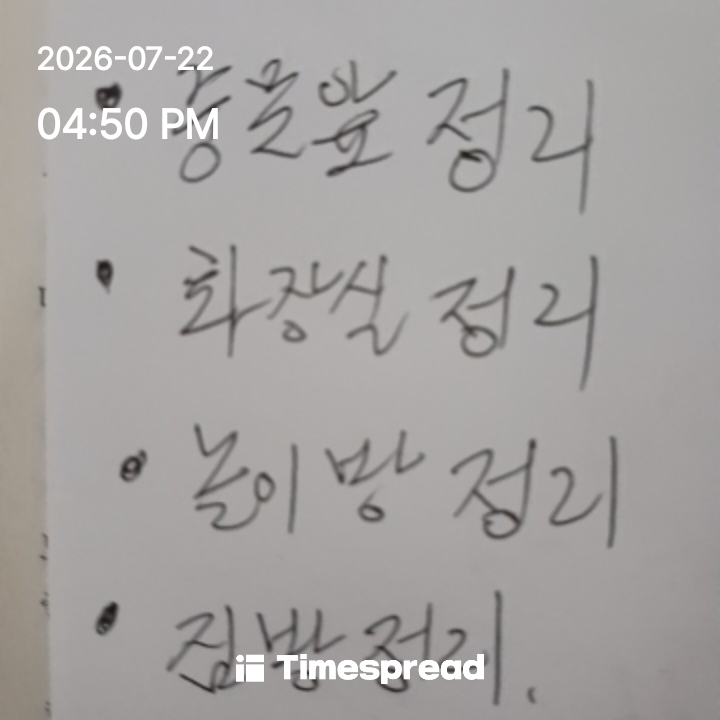 2026-07-22
04:50 PM
정리
화장실 정리
놀이방 정리
짐방 정리.
Timespread